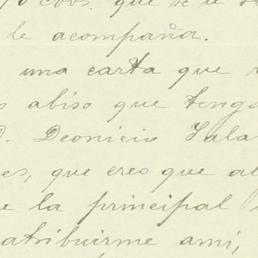 que se le
le acompaña.
una carta que
abiso que tenga
D. Deonicio Sala
es, que creo que al
e la principal
atribuirme ami,